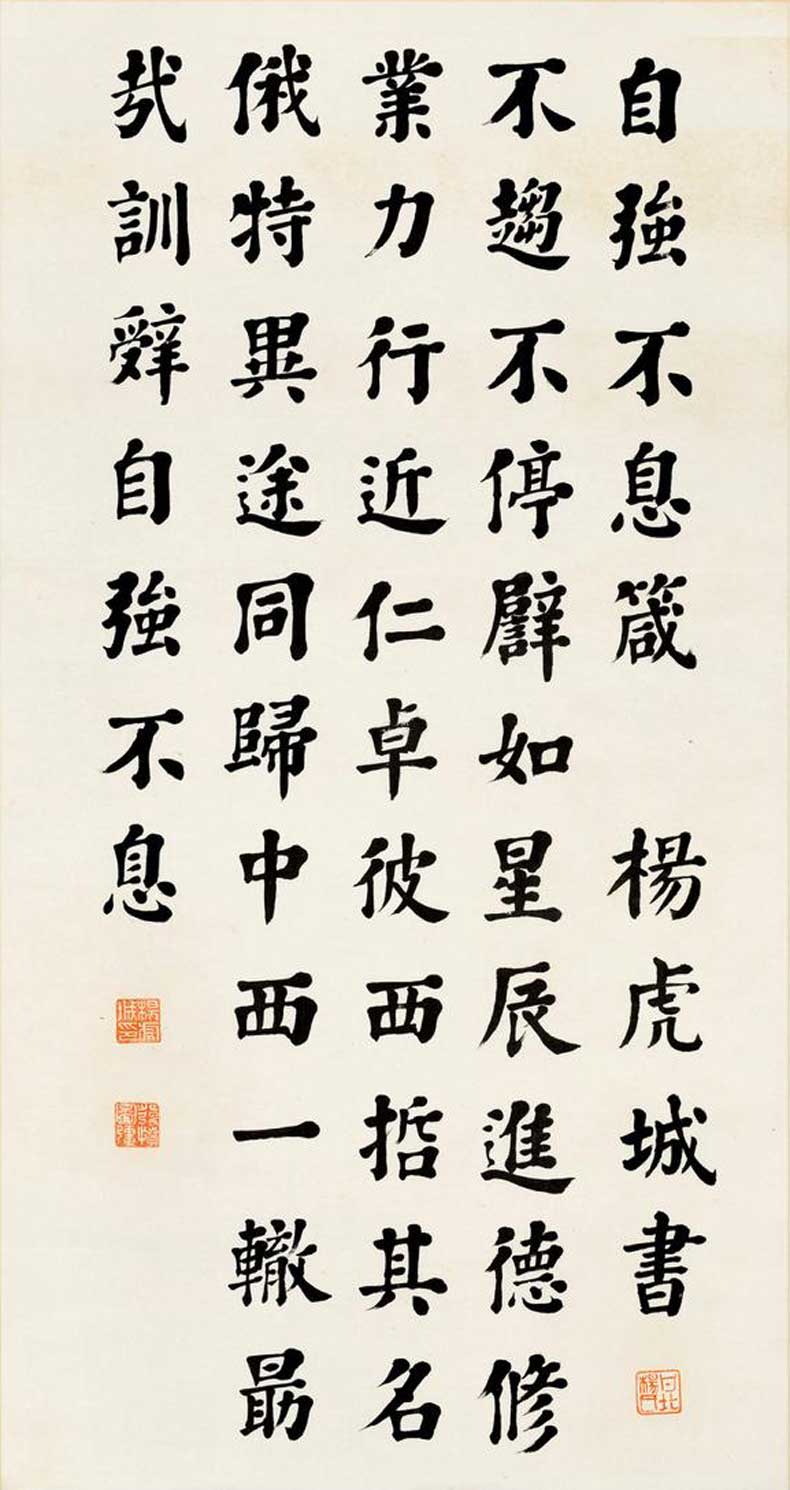 自強不息箴 楊虎城書
不趨不停譬如星辰進德修
業力行近仁卓彼西哲其名
俄特異途同歸中西一轍勗
哉訓辭自強不息
楊虎城印